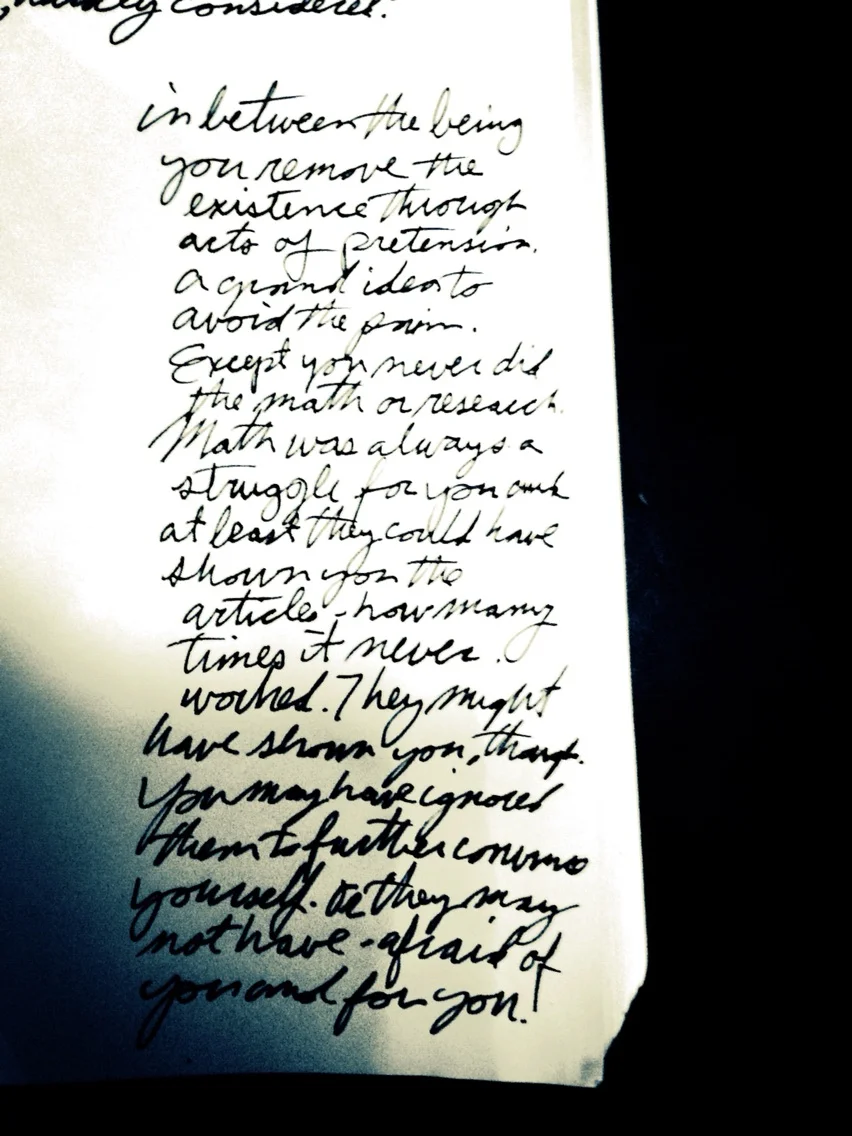 considered.
in between the being
you remove the
existence through
acts of pretension.
a grand idea to
avoid the pain.
Except you never did
the math or research.
Math was always a
struggle for you and
at least they could have
shown you the
articles - how many
times it never.
worked. They might
have shown you, though.
You may have ignored
them to further convince
yourself. Or they may
not have - afraid of
you and for you!